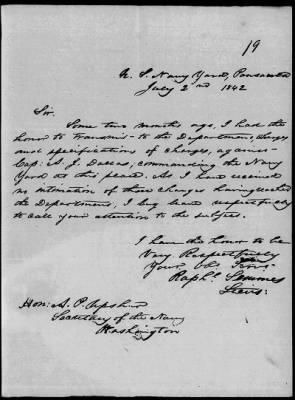 19
U. S. Navy Yard, Pensacola
July 2nd 1842
Sir.
Some two months ago, I had the
honor to transmit to the Department, charges
and specifications of charges, against
Cap: A. J. Dallas, commanding the Navy
Yard at this place. As I have received
no intimation of these charges having reached
the Department, I beg leave respectfully
to call your attention to the subject.
I have the honor to be
Very Respectfully
Your Obt
Raphl. Semmes
Lieut:
Hon: A. P. Upshur
Secretary of the Navy
Washington